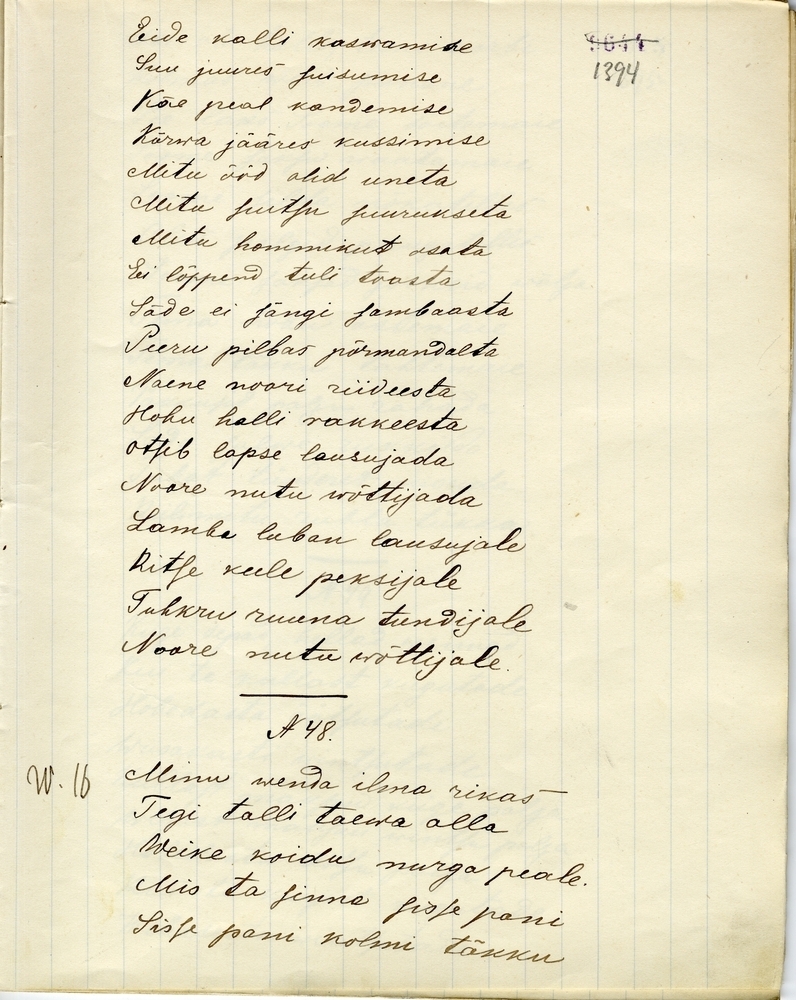 Eide kalli kaswamise
Suu juures suisumise
Käe peal kandemise
Kõrwa jääres kussimise
Mitu ööd olid uneta
Mitu suitsu suurukseta
Mitu hommikut osata
Ei lõppend tuli toasta
Säde ei jängi sambaasta
Peeru pilbas põrmandalta
Naene noori riideesta
Hobu halli rakkeesta
Otsib lapse lausujada
Noore nutu wõttijada
Lamba luban lausujale
Kitse keele peksijale
Tuhkru ruuna tundijale
Noore nutu wõttijale.
N 48.
W. 16
Minu wenda ilma rikas
Tegi talli taewa alla
Weike koidu nurga peale.
Mis ta sinna sisse pani
Sisse pani kolmi täkku
1394